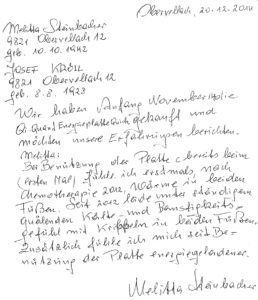 Obervellach, 20.12.2014
Melitta Steinbacher
9821 Obervellach 12
geb. 10.10.1942
Josef Kröll
9821 Obervellach 12
geb. 8.8.1928
Wir haben Anfang November die
Qi. Quant Energieplatte gekauft und
möchten unsere Erfahrungen berichten.
Melitta:
Bei Benützung der Platte (bereits beim
ersten Mal) fühle ich erstmals, nach
Chemotherapie 2012, Wärme in beiden
Füßen. Seit 2012 leide unter ständigem
quälenden Kälte- und Bamstigkeits-
gefühl mit Kribbeln in beiden Füßen.
Zusätzlich fühle ich mich seit Be-
nützung der Platte energiegeladener.
Melitta Steinbacher